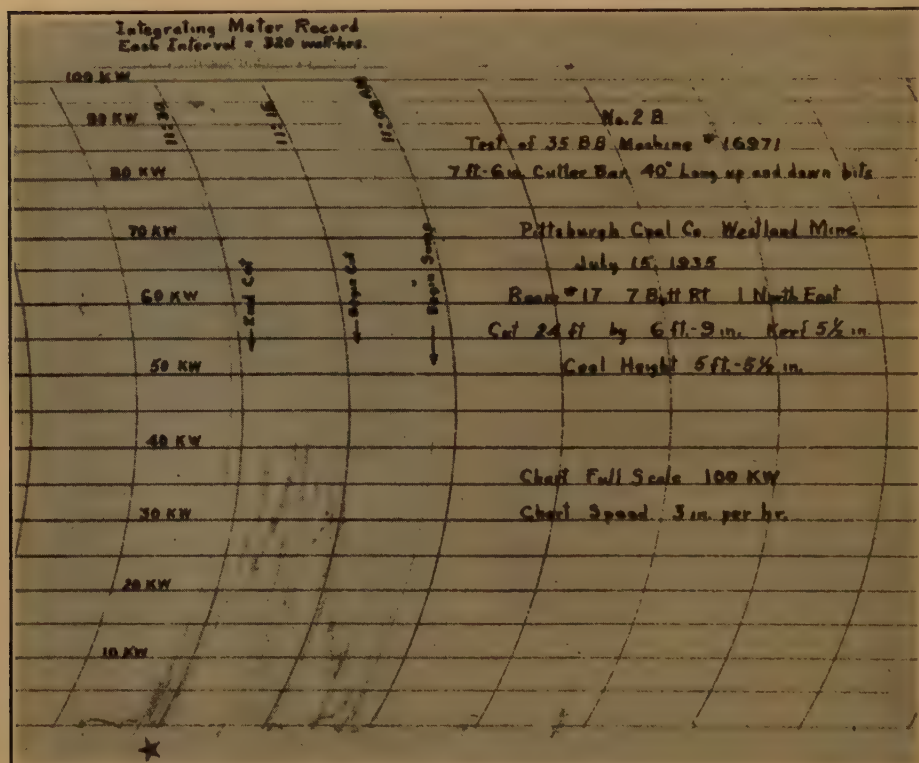 Integrating Meter Record
Each Interval = 320 watt-hrs.
100 KW
90 KW
80 KW
70 KW
60 KW
50 KW
40 KW
30 KW
20 KW
10 KW
11:15
End Cut
Begin Cut
Begin Sump
No. 2 B
Test of 35 BB Machine # 16971
7 ft-6 in. Cutter Bar 40° Long up and down bits
Pittsburgh Coal Co. Westland Mine
July 15, 1935
Room #17 7 Butt Rt 1 North East
Cut 24 ft by 6 ft.-9 in. Kerf 5½ in.
Coal Height 5 ft.-5½ in.
Chart Full Scale 100 KW
Chart Speed 3 in. per hr.